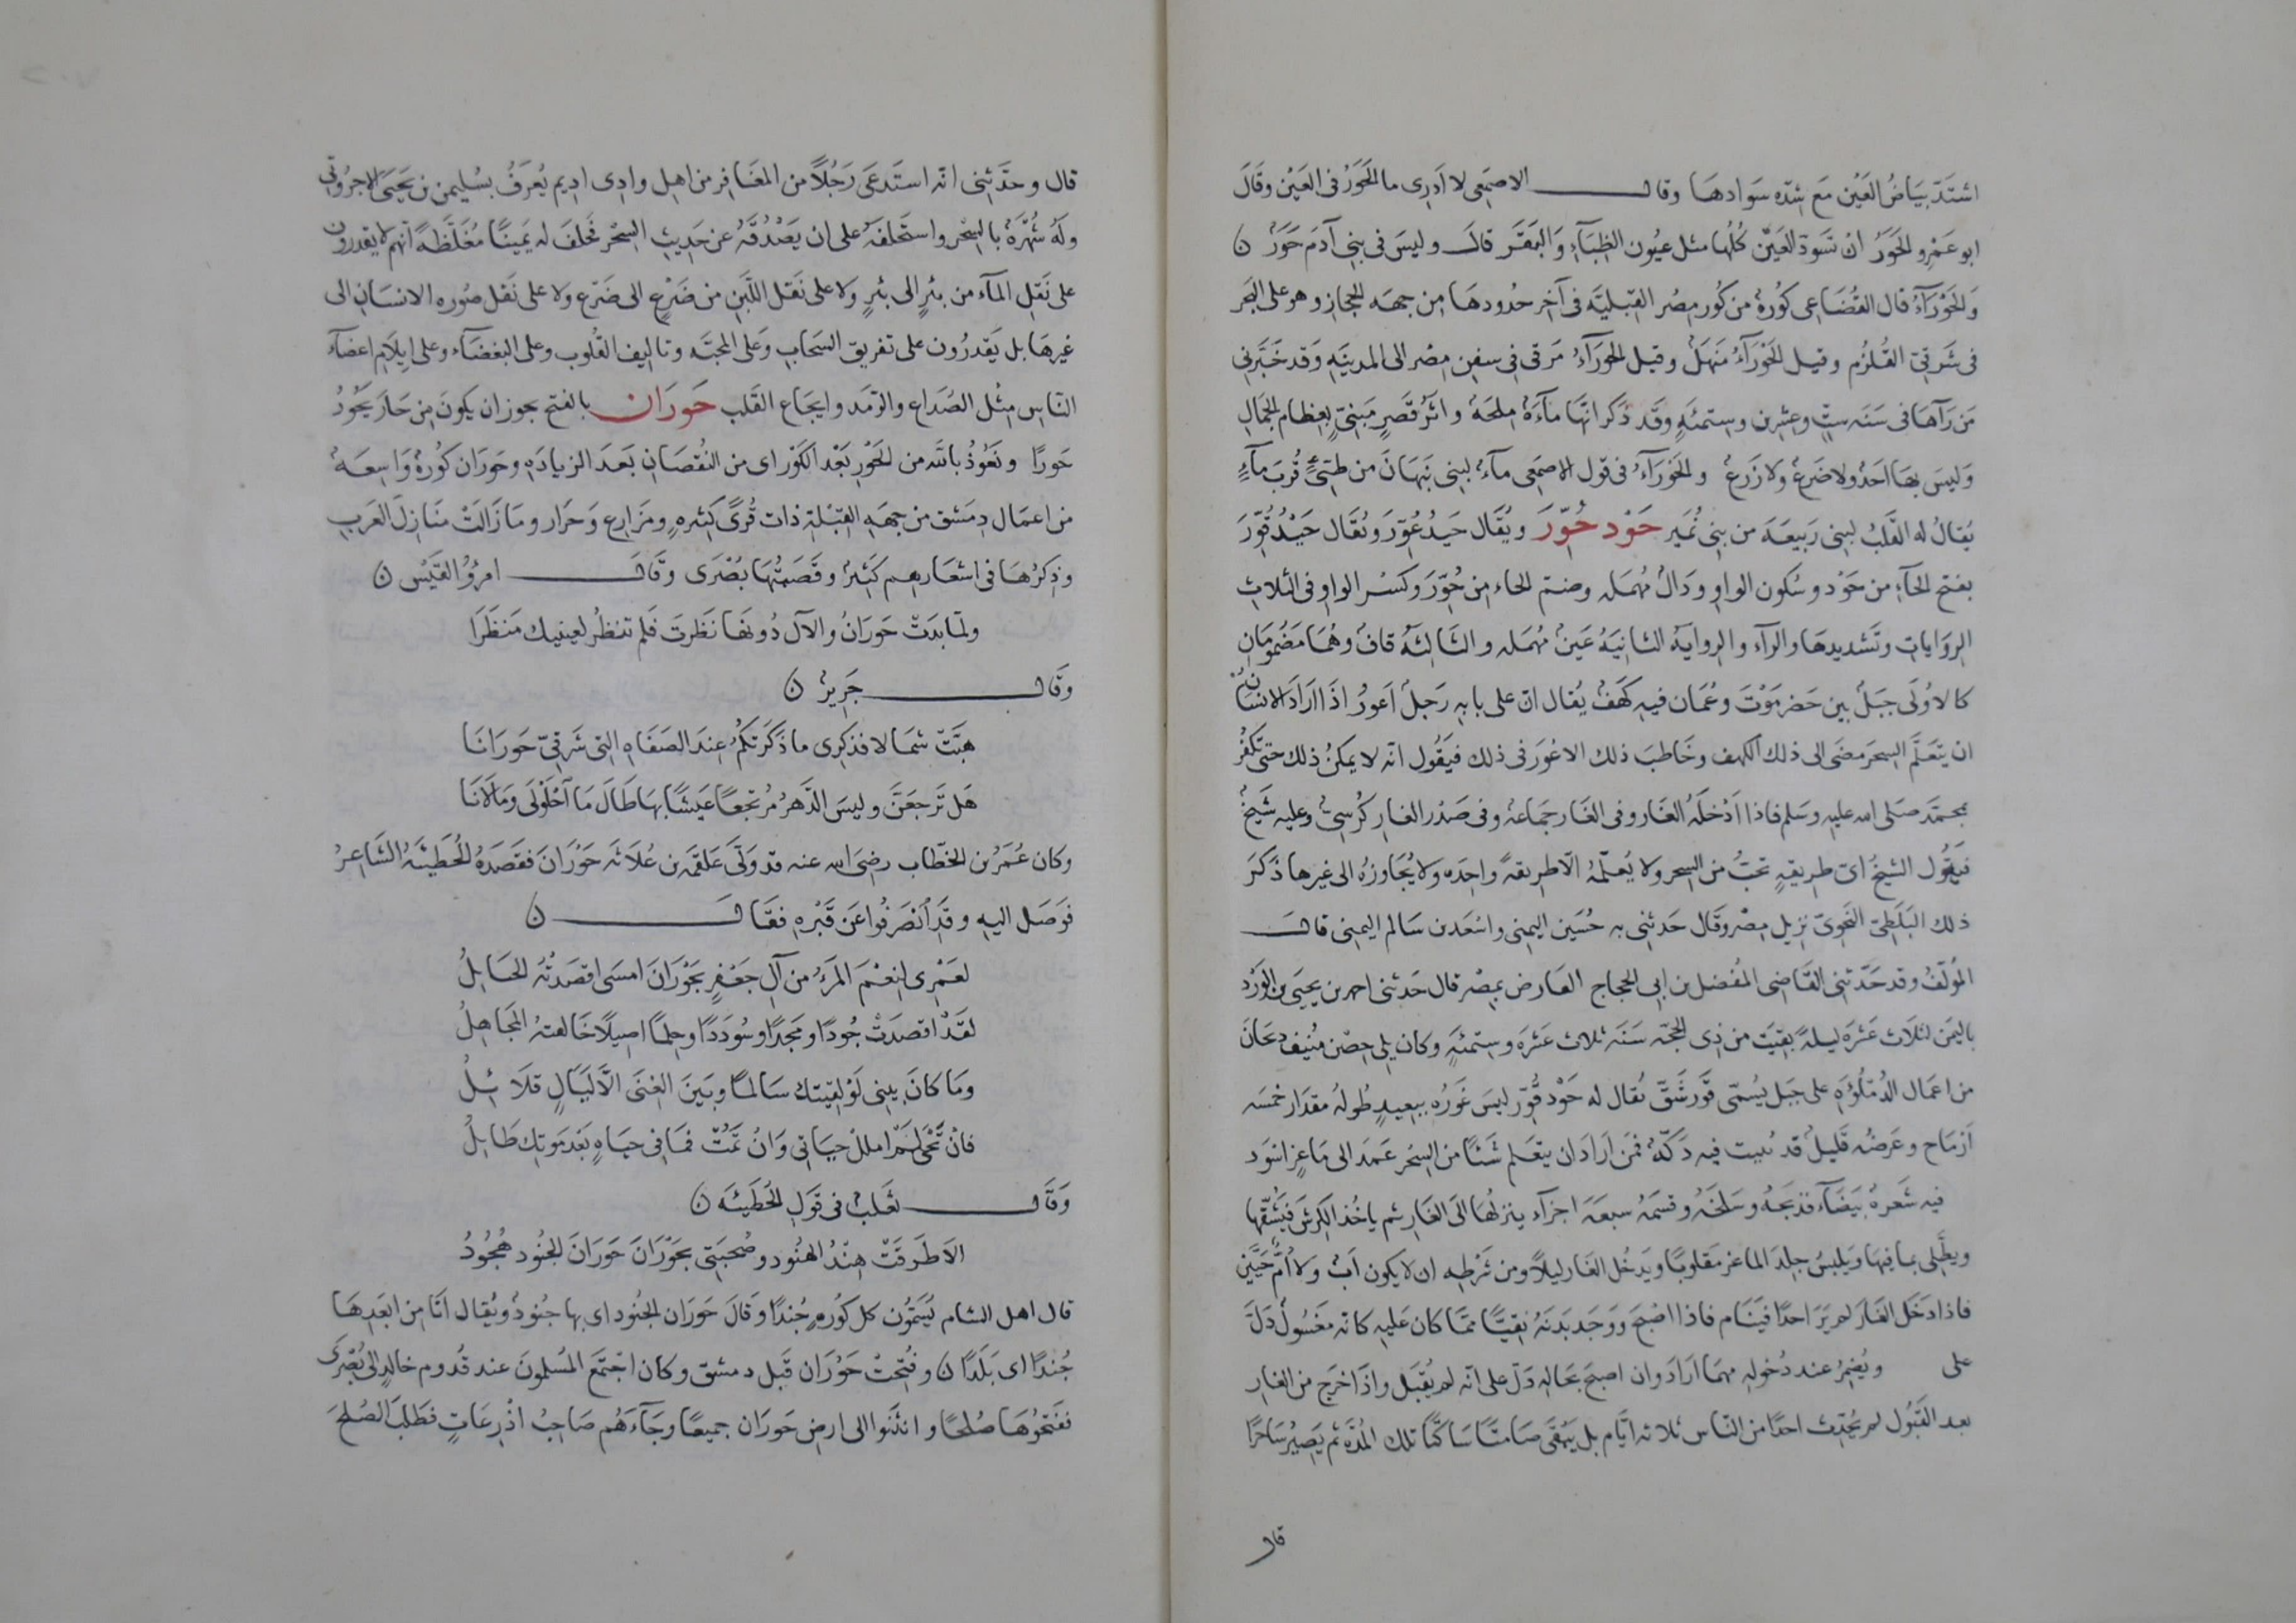 اشتَدّ بيَاضُ العَيْن مَع شدّه سَوَادهَا وقال الاصمَعى لا اَدرِى ما الحَوَرُ فى العَيْن وقَالَ
ابو عَمْرِو الحَوَرُ ان تَسوَدّ العَينُ كُلّها مثل عيُون الظِبَآءِ وَالبَقَر قالَ وليسَ فى بنى آدَم حَوَرٌ ن
وَالحَوْرَآءُ قال القُضَاعى كُورةٌ من كُور مِصْر القبْليَّه فى آخِر حُدودهَا مِن جهَه الحِجاز وهو على البَحر
فى شَرقىّ القُلزُم وقيل الحَوْرَآءُ مَنهَلٌ وقيل الحَورَآءُ مَرفى فى سفِن مِصْر الى المدينَهِ وَقد خَبَّرنى
مَن رَآهَا فى سَنَه ستٍّ وعِشرِن وستمئهٍ وقَد ذَكر انّهَا مآءَةٌ مِلحَةٌ واثرُ قَصرٍ مَبنىّ بعِظام الجِمَالِ
وَليسَ بهَا احَدٌ ولا ضَرعٌ ولا زَرعٌ والحَوْرَآءُ فى قول الاصمَعى مآءٌ لبنى نَبهَانَ من طيّئٍ قُربَ مآءٍ
يُقالُ له القَلبُ لبنى رَبيعَه من بنى نُمَير حَوْد حُوِّرَ ويُقال حَيدُ عُوِّرَ ويُقَال حَيْدُ قُوِّرَ
بفتح الحآءِ من حَوْد وسُكون الواوِ ودَالُ مُهمَله وضمّ الحاء مِن حُوِّرَ وكَسْر الواوِ فى الثلاثِ
الروَاياتِ وتَشديدهَا والرآء والروايهُ الثانيَهُ عَينٌ مُهمَله والثَالثَهُ قافٌ وهُمَا مَضمُومَانِ
كالاُولَى جبَلٌ بين حَضرمَوْتَ وعُمَان فيهِ كَهَفٌ يُقال انّ على بابهِ رَجلٌ اَعورُ اذَا ارَادَ الانسَانُ
ان يتعَلّم السِحرَ مضَى الى ذلك الكهف وخَاطبَ ذلك الاعوَر فى ذلك فيَقُول انّه لا يمكنُ ذلك حتى تكفُرُ
بمحمَّد صَلى اللّه عليهِ وسَلم فاذا اَدْخلَهُ الغَار وفى الغَار جمَاعهٌ وفى صَدْر الغار كُرسىٌ وعليهِ شَيخٌ
فيَقول الشيخُ اىّ طريقهٍ تحبُّ من السِحر ولا يُعلّمهُ الّا طريقةً واحِدَه ولا يُجَاوزهُ الى غيرهَا ذَكَرَ
ذلك البَلَطِىّ النَحوِىّ نزيل مِصْر وقَال حَدثنى به حُسَين اليمنى واسْعَد بن سَالم اليمنى قالَ
المؤلّف وقد حَدّثنى القَاضى المُفضل بن ابى الحجاج العَارض بمِصْر قال حَدثنى احمد بن يحيَى بن الوَرْد
باليَمن لثلَاث عَشرَه ليلةً بقيَت من ذِى الحجّه سَنَه ثلاث عَشرَه وستمئهٍ وكان يلى حِصْن مُنيف ذبحَانَ
من اعمَال الدُملُوَهِ على جَبل يُسَمّى قَّور شَقّ يُقال له حَوْد قُّوِّر ليسَ غَورُه ببعيدٍ طُولهُ مقدَار خمسَه
اَرْمَاح وعَرضُه قليلُ قد بُنيت فيه دَكّةٌ فمَن اَرَادَ ان يتعَلم شَئًا من السِحْر عَمَدَ الى مَاعِز اسْوَد
فيه شَعرةٌ بَيضَآء فذبحَهُ وسَلخَهُ وقسّمَهُ سبعَهَ اجزآء ينزلهَا الَى الغَارِ ثم ياخُذ الكَرِشَ فيَشُقّهَا
ويطَّلى بما فيهَا وَيَلبسُ جلدَ الماعز مقلوبًا ويَدخُل الغَار ليلًا ومن شَرطِه ان لا يكون اَبٌ ولا اُمٌّ حَيَّيْن
فاذا دَخَل الغَارَ لم يَرَ احدًا فيَنَام فاذا اصْبَح ووَجَد بَدنَهُ نقيًّا ممّا كان عَليهِ كانّه مَغسُولٌ دَلَّ
على ويُضمِرُ عند دُخولهِ مهمَا ارَادَ وان اصبحَ بحَالهِ دَلّ على انّه لم يُقبَل واذَا خرَج من الغَارِ
بعد القَبُول لم يُحدِّث احدًا من النّاس ثلاثه ايّام بل يَبْقَى صَامتًا سَاكتًا تلك المُدّه ثم يَصِيرُ سَاحرًا
قال
قال وحدَّثنى انّه استَدعَى رَجُلًا من المعَافِر من اهل وادِى اديم يُعرَفُ بسُليمن بن يَحيَى الاجرُوقى
ولَهُ شُهرَةٌ بالسِحْر واستَحلفَهُ على ان يَصْدُقَهُ عن حَديثِ السِحْر فحَلفَ له يَمينًا مُغَلّظَةً انّهم لا يَقدرون
على نَقلِ المآء من بئرٍ الى بئرٍ ولا على نَقل اللّبَن من ضَرْعٍ الى ضَرْعٍ ولا على نَقل صُوره الانسَانِ الى
غيرهَا بل يَقدرُون على تفريق السَحَابِ وَعلى المحبّه وتاليف القُلوب وعلى البغضَآء وعلى ايلَام اعضآء
النّاسِ مِثْل الصُدَاع والرّمَد وايجَاع القَلب حَورَان بالفتح يجوز ان يكونَ مِن حَارَ يحُورُ
حَورًا ونعُوذُ بالله من الحَوْر بَعْد الكَوْر اى من النُقصَانِ بَعدَ الزيادَهِ وحَورَان كُورةٌ وَاسِعَةٌ
من اعمَال دِمَشق من جهَهِ القِبْلةِ ذات قُرًى كثيرهٍ ومَزَارِع وَحرَار ومَا زَالَتْ مَنازِلَ العَرَبِ
وذِكرُهَا فى اشعَارهِم كَثيرٌ وقَصَبَتُهَا بُصْرَى وقَالَ امرُؤُ القَيْس ن
ولمّا بَدَتْ حَورَانُ والآلُ دُونَهَا نَظَرتَ فلَم تنظُر لعينيك مَنظَرَا
وقَال جَرِيرٌ ن
هبّتْ شمَالا فذِكرى ما ذَكرتكُم عِندَ الصَفَاهِ التى شَرقىّ حَورَانَا
هَل تَرجعَنَّ وليسَ الدّهرُ مُرتجعًا عَيشًا بهَا طَالَ مَا اَحْلَوْلَى ومَا لَانَا
وكان عُمَرُ بن الخَطّاب رضىَ اللّه عنه قد وَلّى عَلقمَه بن عُلَاثَه حَوْرَانَ فقَصَدَهُ الحُطيئَهُ الشَاعِرُ
فوَصَل اليهِ وقَدِ اُنصَرفُوا عَن قَبْرهِ فقَالَ ن
لعَمْرِى لنِعْمَ المَرءُ من آلِ جَعْفرٍ بحَوْرَانَ امسَى اقصَدتْهُ الحبَايلُ
لقَدْ اقصَدَتْ جُودًا ومَجدًا وسُودَدًا وحِلمًا اصيلًا خَالفتهُ المجَاهِلُ
ومَا كانَ بينى لَوْ لقيتك سَالمًا وبَينَ الغِنَى الّا لَيَالٍ قلَائِلُ
فانْ تَحْىَ لم امللْ حيَاتى وَانْ تمُتْ فمَا فى حيَاهٍ بَعْدَ مَوتِكَ طَايلُ
وَقَال ثعَلبٌ فى قَول الحُطَيئه ن
الَا طَرقَتْ هِنْدُ الهنُود وصُحبَتى بحَوْرَانَ حَورَانَ الجُنود هُجُودُ
قال اهل الشام يُسَمُّونَ كل كُورهٍ جُندًا وَقالَ حَورَان الجُنود اى بها جُنودٌ ويُقال اَنَا مِن ابعَدِهَا
جُندًا اى بَلَدًا ن وفُتحتْ حَوْرَان قَبل دمشق وكان اجتَمَع المُسلمونَ عند قُدوم خالدٍ الى بُصْرَى
ففتحُوهَا صُلحًا وانثَنَوا الى ارضِ حَورَان جميعًا وجَآءَهُم صَاحِبُ اذْرِعَاتٍ فطَلبَ الصُلحَ